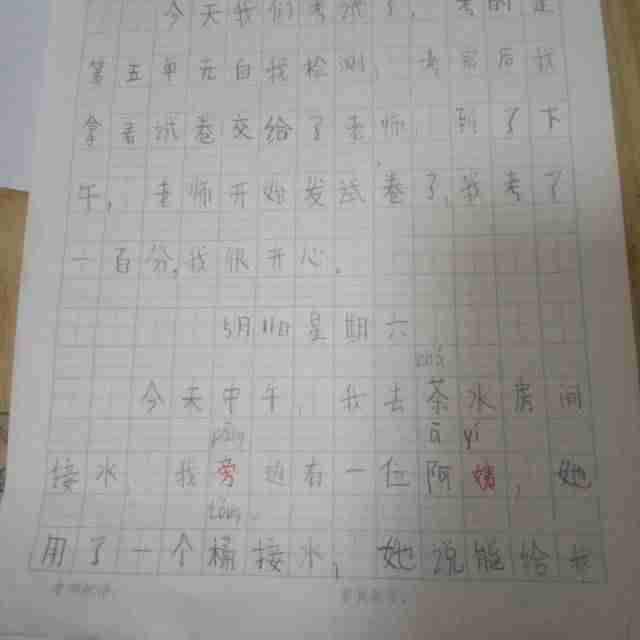 今天我们考试了,
第五单元自我检测, 考完后我
拿着试卷交给了老师, 到了下
午, 老师开始发试卷了,我考了
一百分,我很开心。
5月11日星期六
今天中午, 我去茶水房间
接水, 我旁边有一位阿姨, 她
用了一个桶接水, 她说能给我